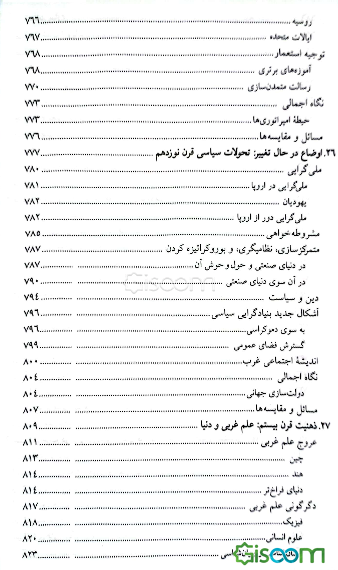 روسیه ... ۷۶۶
ایالات متحده ... ۷۶۷
توجیه استعمار ... ۷۶۸
آموزه‌های برتری ... ۷۶۸
رسالت متمدن‌سازی ... ۷۷۰
نگاه اجمالی ... ۷۷۳
حیطهٔ امپراتوری‌ها ... ۷۷۳
مسائل و مقایسه‌ها ... ۷۷۶
۲۶. اوضاع در حال تغییر: تحولات سیاسی قرن نوزدهم ... ۷۷۷
ملی‌گرایی ... ۷۸۰
ملی‌گرایی در اروپا ... ۷۸۱
یهودیان ... ۷۸۲
ملی‌گرایی دور از اروپا ... ۷۸۲
مشروطه‌خواهی ... ۷۸۵
متمرکزسازی، نظامیگری، و بوروکراتیزه کردن ... ۷۸۷
در دنیای صنعتی و حول و حوش آن ... ۷۸۷
در آن سوی دنیای صنعتی ... ۷۹۰
دین و سیاست ... ۷۹۴
أشکال جدید بنیادگرایی سیاسی ... ۷۹۶
به سوی دموکراسی ... ۷۹۶
گسترش فضای عمومی ... ۷۹۹
اندیشهٔ اجتماعی غرب ... ۸۰۰
نگاه اجمالی ... ۸۰۴
دولت‌سازی جهانی ... ۸۰۴
مسائل و مقایسه‌ها ... ۸۰۷
۲۷. ذهنیت قرن بیستم: علم غربی و دنیا ... ۸۰۹
عروج علم غربی ... ۸۱۱
چین ... ۸۱۳
هند ... ۸۱۴
دنیای فراخ‌تر ... ۸۱۴
دگرگونی علم غربی ... ۸۱۷
فیزیک ... ۸۱۸
علوم انسانی ... ۸۲۰
۸۲۳
Giscom